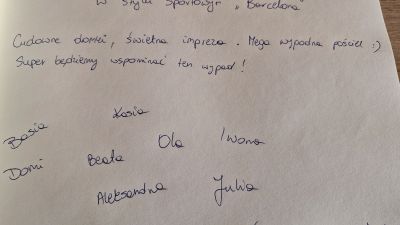 w stylu sportowym „Barcelona"
Cudowne domki, świetna impreza. Mega wypadna pościel :)
Super będziemy wspominać ten wypad!
Kasia
Basia
Ola Iwona
Domi Beata
Aleksandra Julia